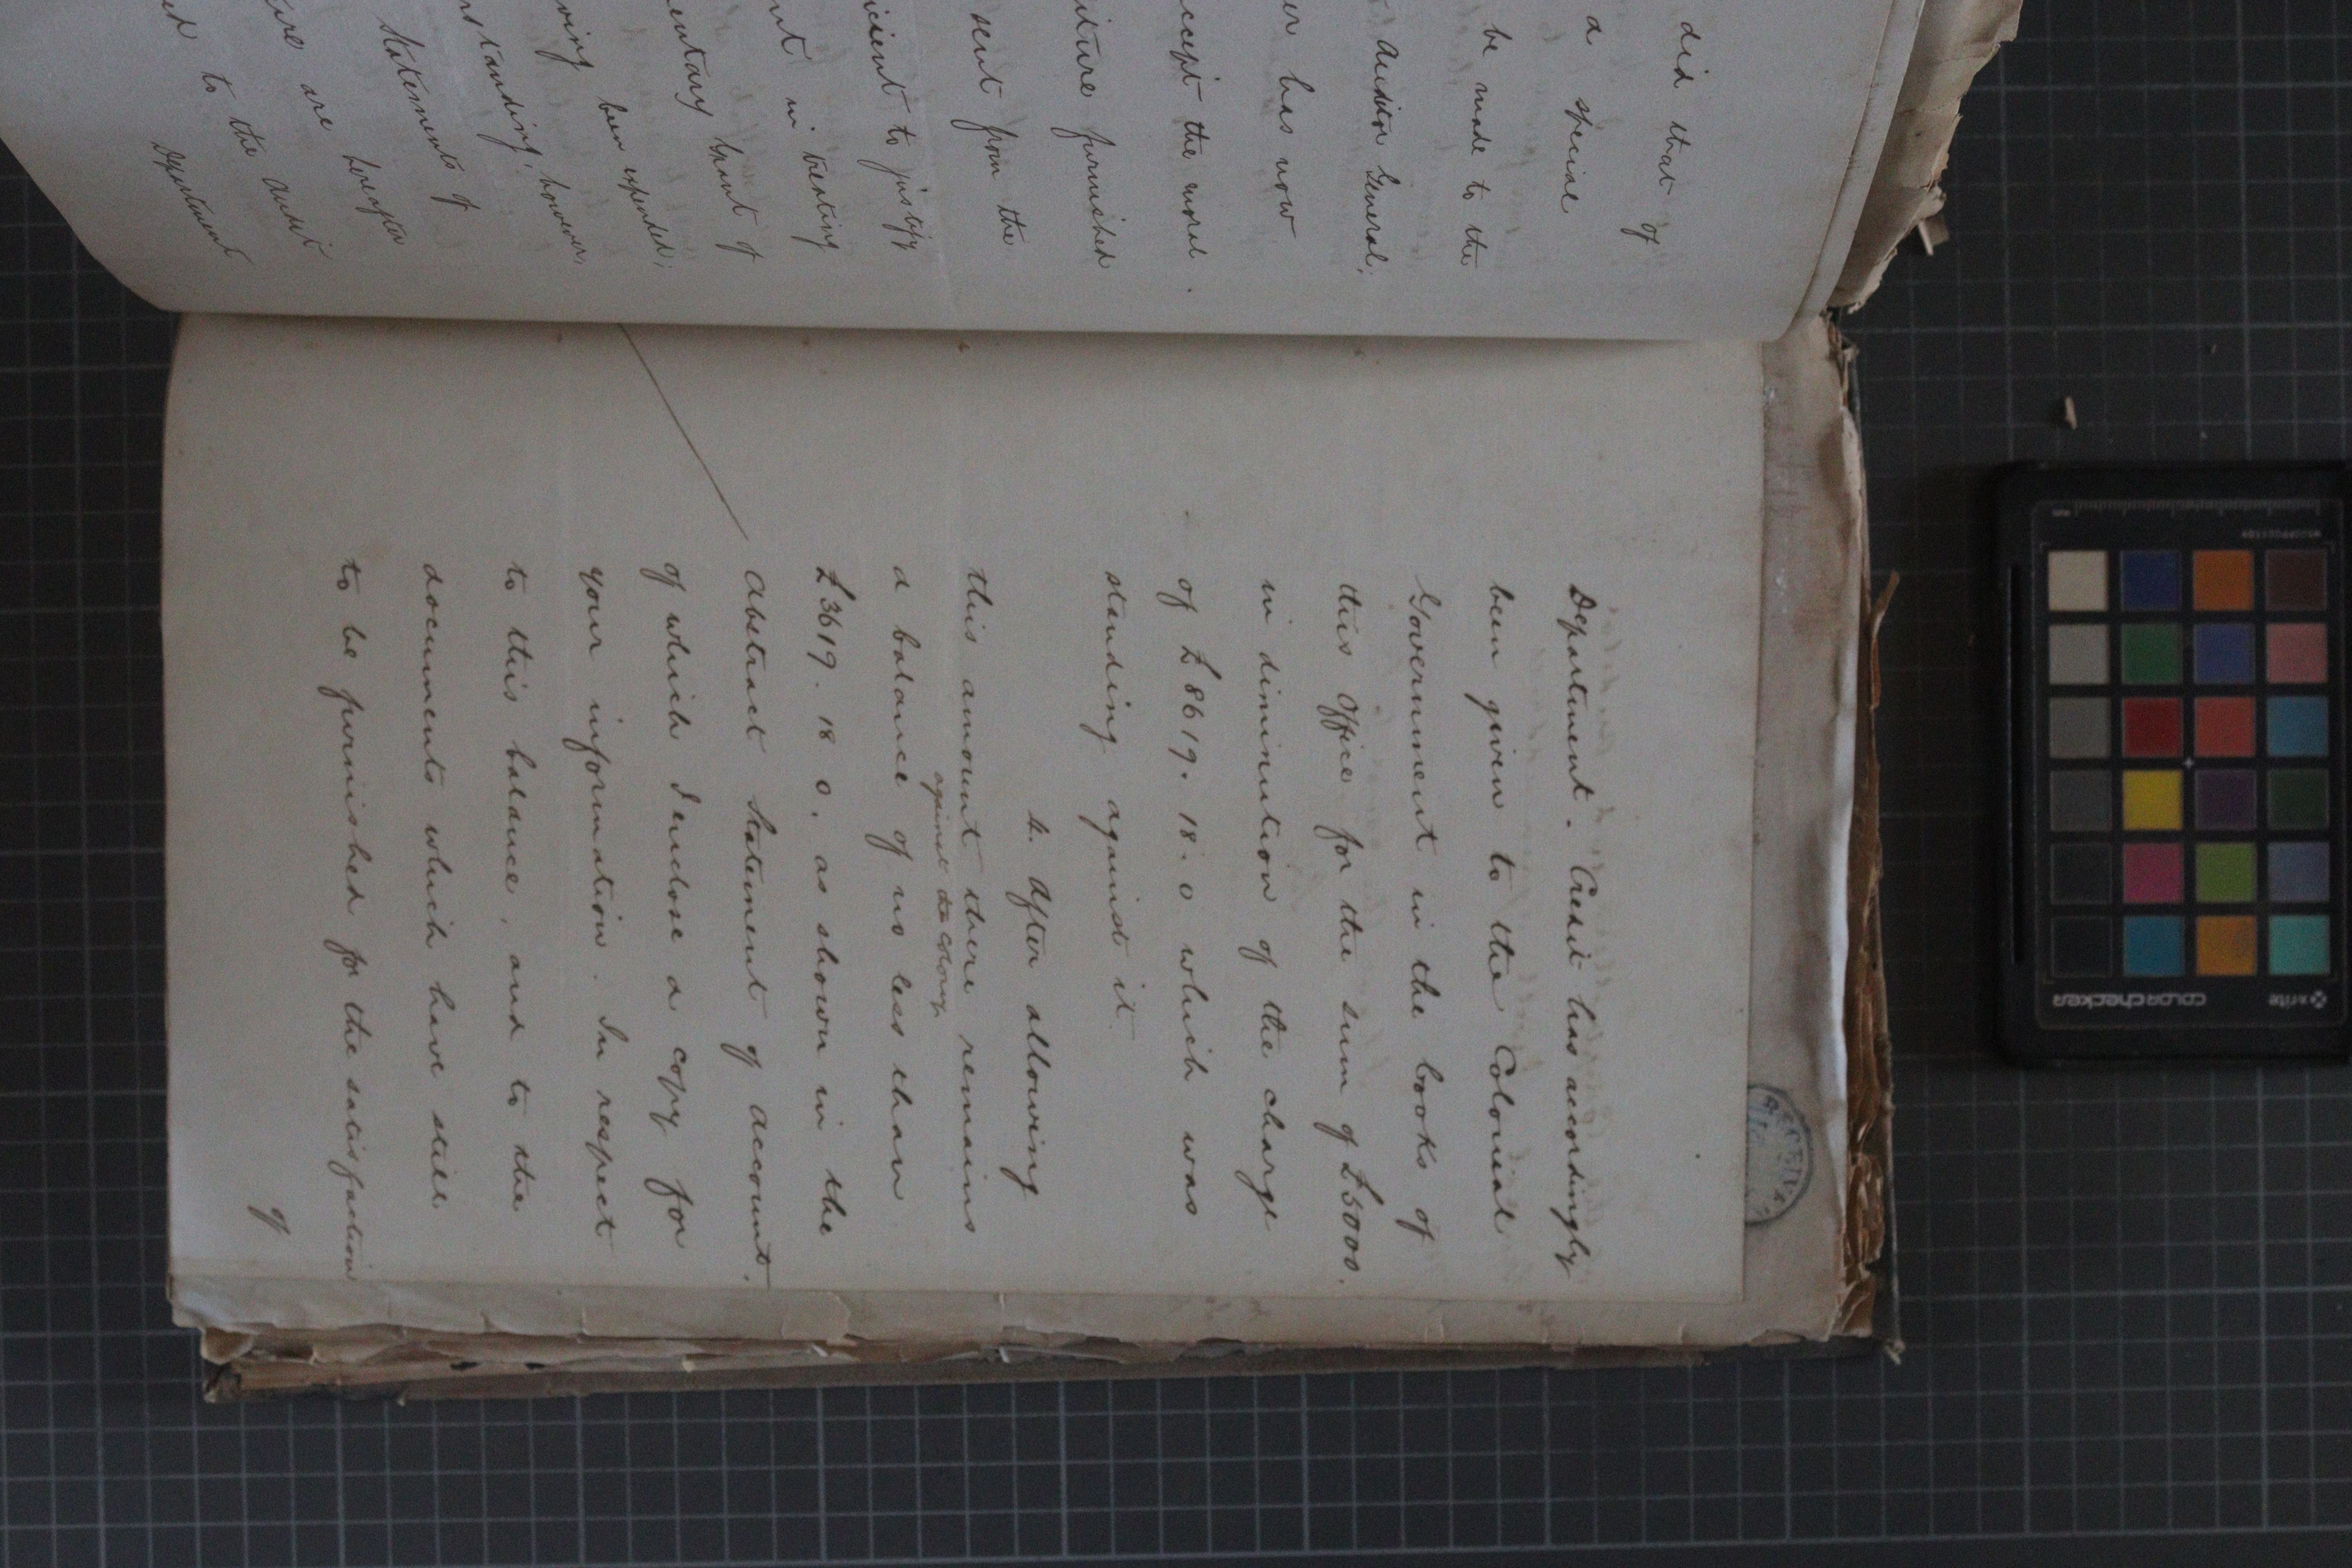 did that of
a special
be made to the
Auditor General,
er has now
ccept the usual
iture furnished
sent from the
icient to justify
nt in treating
entary Grant of
ving been expended;
nstanding, however,
Statements of
ure are hereafter
ed to the Audit
Department
Department. Credit has accordingly
been given to the Colonial
Government in the books of
this Office for the sum of £5000.
in diminution of the charge
of £8619. 18. 0 which was
standing against it.
4. After allowing
this amount there remains
against the Colony
a balance of no less than
£3619. 18 0. as shown in the
Abstract Statement of Account.
of which I enclose a copy for
your information. In respect
to this balance, and to the
documents which have still
to be furnished for the satisfaction
of
RECEIVE
x-rite
colorchecker